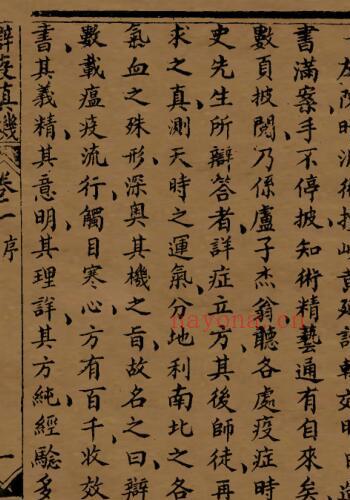 書滿案手不停披知術精藝通有自來矣
數頁披閱乃係盧子杰翁聽各處疫症時
史先生所辯答者詳症立方其後師徒再
求之真測天時之運氣分地利南北之各
氣血之殊形深奧其機之旨故名之曰辯
數載瘟疫流行觸目寒心方有百千收效
書其義精其意明其理詳其方純經驗多
辯疫真機 卷一 序 一
nayona.cn